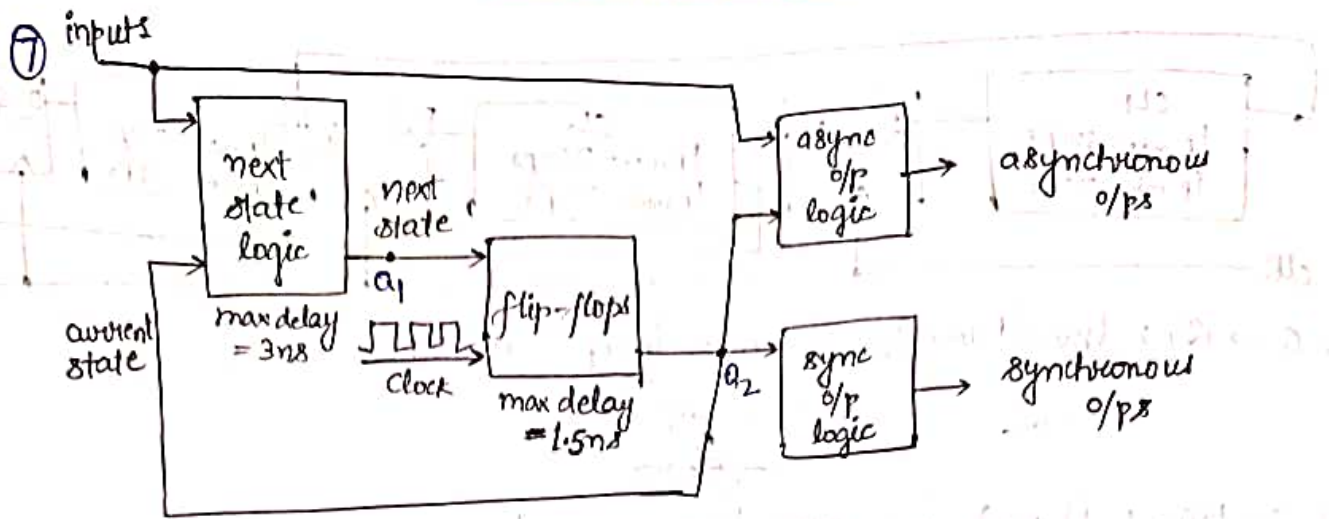 7
inputs
next
state
logic
max delay
= 3ns
current
state
next
state
a1
Clock
flip-flops
max delay
= 1.5ns
a2
async
o/p
logic
asynchronous
o/ps
sync
o/p
logic
synchronous
o/ps